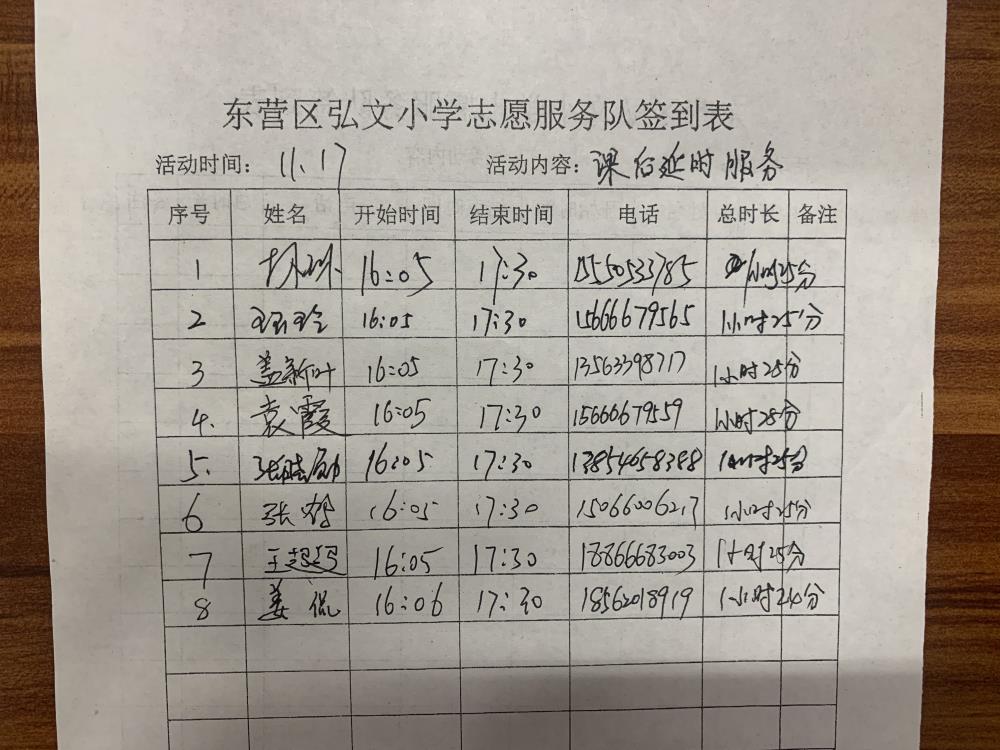 东营区弘文小学志愿服务队签到表
活动时间： 11.17 活动内容：课后延时服务
序号 姓名 开始时间 结束时间 电话 总时长 备注
1 16:05 17:30 15550533785 1小时25分
2 16:05 17:30 15666679565 1小时25分
3 盖新叶 16:05 17:30 13563398717 1小时25分
4. 袁霞 16:05 17:30 15660679559 1小时25分
5. 16:05 17:30 13854658388 1小时25分
6 张 16:05 17:30 15066006217 1小时25分
7 王超超 16:05 17:30 18866683003 1小时25分
8 姜侃 16:06 17:30 18562018919 1小时24分